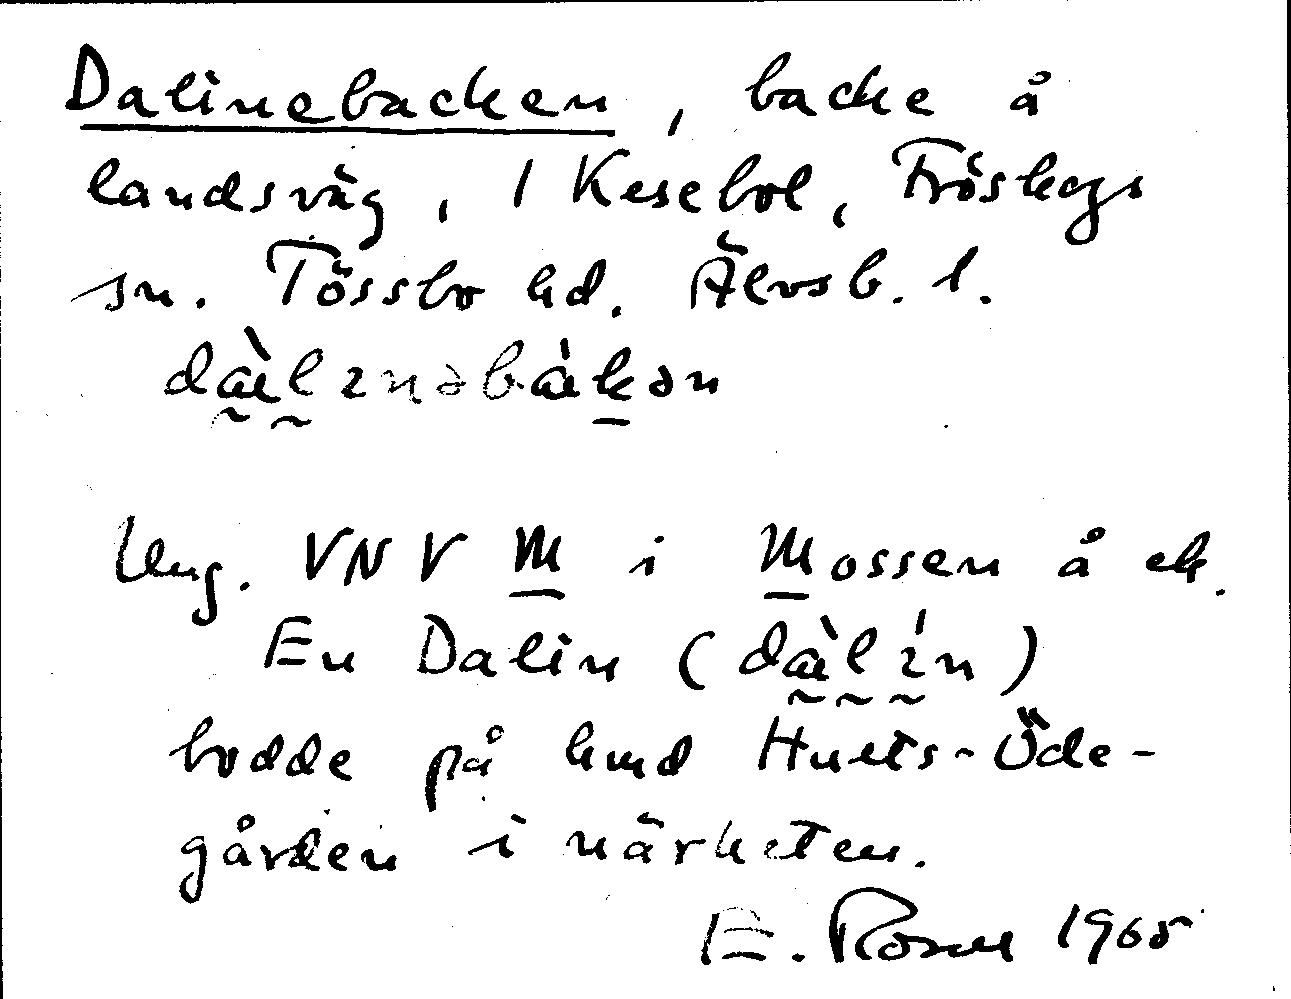 Dalinebacken, backe å
landsväg, 1 Kesebol, Fröskogs
sn. Tössbo hd. Älvsb. l.
Ung. VNV M i Mossen å ek.
En Dalin
bodde på hmd Hults-Öde-
gården i närheten.
E. Rosell 1965